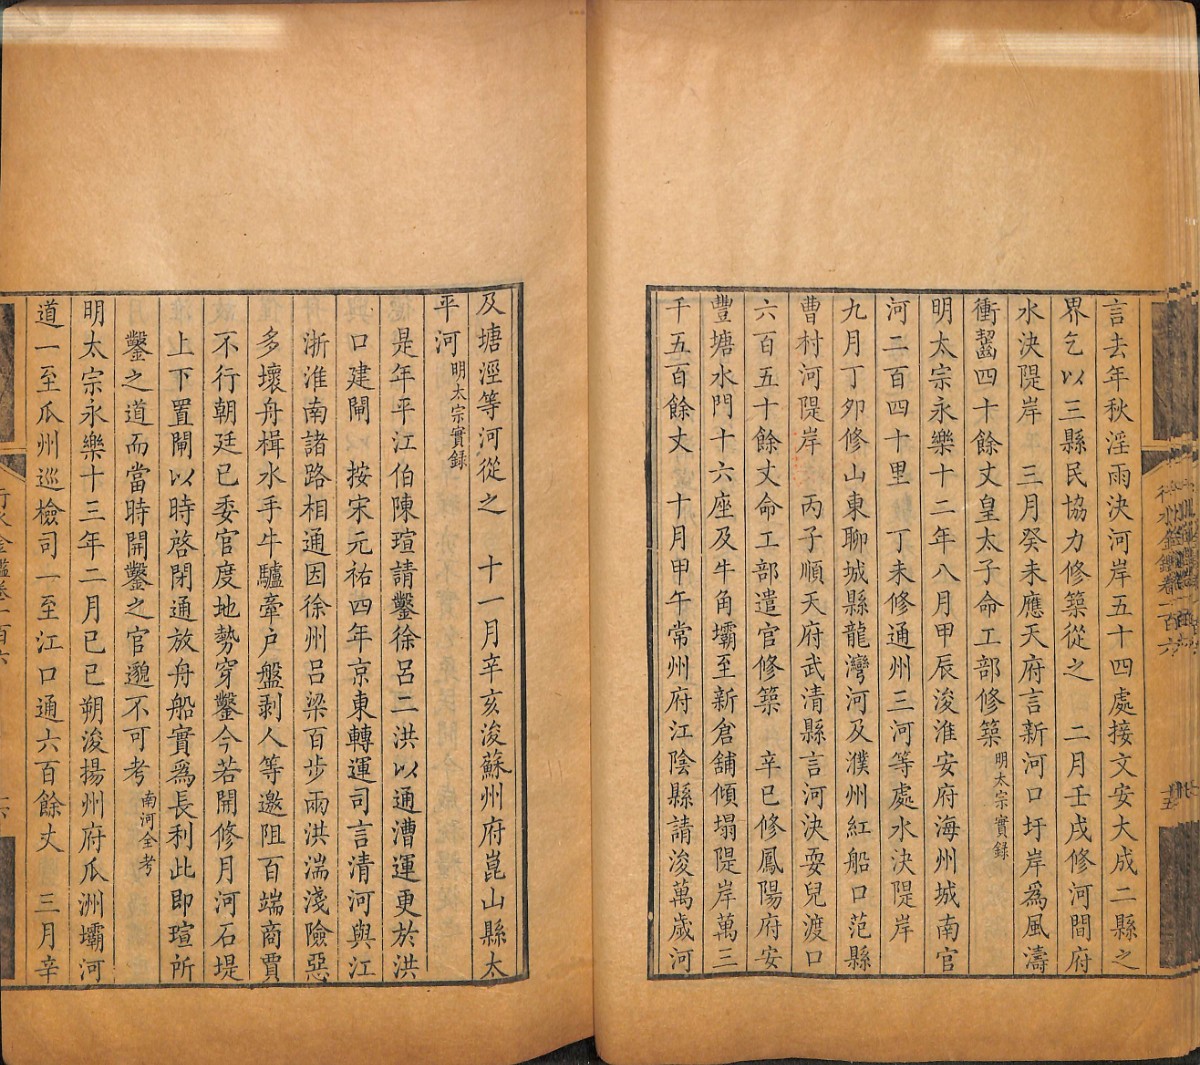 言去年秋淫雨決河岸五十四處接文安大成二縣之
界乞以三縣民協力修築從之　二月壬戌修河間府
水決隄岸　三月癸未應天府言新河口圩岸爲風濤
衝齧四十餘丈皇太子命工部修築明太宗實錄
明太宗永樂十二年八月甲辰浚淮安府海州城南官
河二百四十里　丁未修通州三河等處水決隄岸
九月丁卯修山東聊城縣龍灣河及濮州紅船口范縣
曹村河隄岸　丙子順天府武清縣言河決耍兒渡口
六百五十餘丈命工部遣官修築　辛巳修鳳陽府安
豐塘水門十六座及牛角壩至新倉舖傾塌隄岸萬三
千五百餘丈　十月甲午常州府江陰縣請浚萬歲河
行水金鑑卷一百六
十五
及塘涇等河從之　十一月辛亥浚蘇州府崑山縣太
平河明太宗實録
是年平江伯陳瑄請鑿徐呂二洪以通漕運更於洪
口建閘　按宋元祐四年京東轉運司言清河與江
浙淮南諸路相通因徐州呂梁百步兩洪湍淺險惡
多壞舟楫水手牛驢牽户盤剥人等邀阻百端商賈
不行朝廷已委官度地勢穿鑿今若開修月河石堤
上下置閘以時啓閉通放舟船實爲長利此即瑄所
鑿之道而當時開鑿之官邈不可考南河全考
明太宗永樂十三年二月己巳朔浚揚州府瓜洲壩河
道一至瓜州巡檢司一至江口通六百餘丈　三月辛
行水金鑑卷一百六